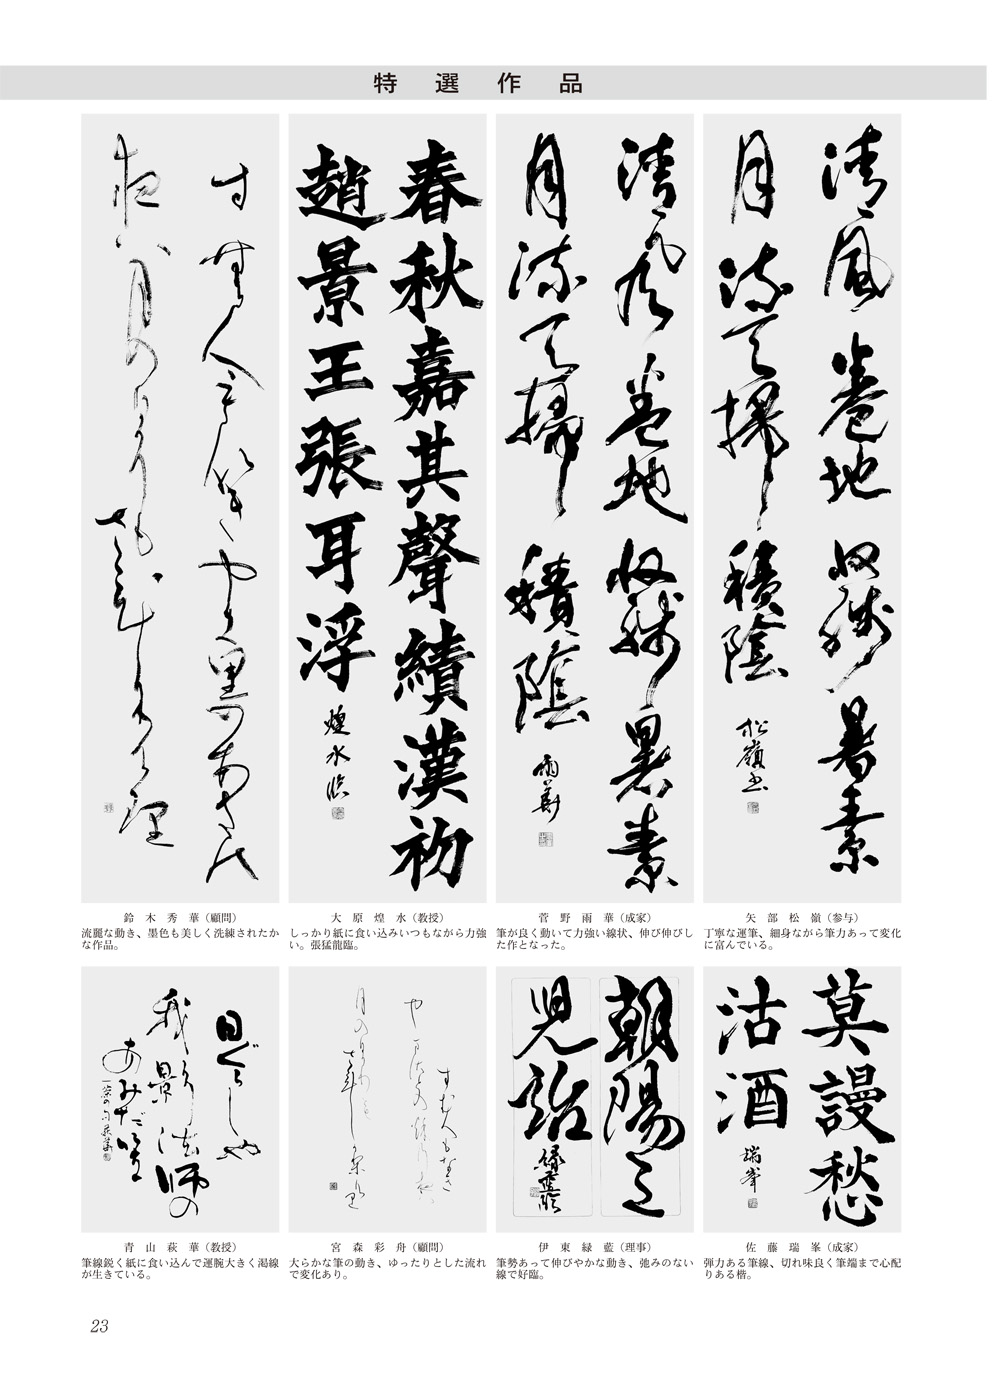 特選作品
清風巻地収残暑素
月流天掃積陰
松嶺書
矢部松嶺（参与）
丁寧な運筆、細身ながら筆力あって変化
に富んでいる。
清風巻地収残暑素
月流天掃積陰
雨華
菅野雨華（成家）
筆が良く動いて力強い線状、伸び伸びし
た作となった。
春秋嘉其聲績漢初
趙景王張耳浮
煌水臨
大原煌水（教授）
しっかり紙に食い込みいつもながら力強
い。張猛龍臨。
鈴木秀華（顧問）
流麗な動き、墨色も美しく洗練されたか
な作品。
莫謾愁
沽酒
瑞峯
佐藤瑞峯（成家）
弾力ある筆線、切れ味良く筆端まで心配
りある楷。
朝陽之
児詒
緑藍臨
伊東緑藍（理事）
筆勢あって伸びやかな動き、弛みのない
線で好臨。
宮森彩舟（顧問）
大らかな筆の動き、ゆったりとした流れ
で変化あり。
日ぐらしや
我影法師の
あみだ笠
一茶の句 萩華
青山萩華（教授）
筆線鋭く紙に食い込んで運腕大きく渇線
が生きている。
23